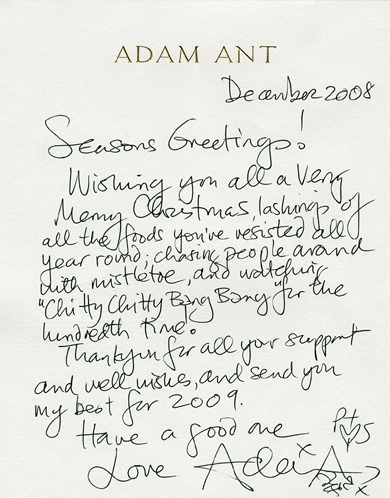 ADAM ANT
December 2008
Seasons Greetings!
Wishing you all a Very
Merry Christmas, lashings of
all the foods you've resisted all
year round; chasing people around
with mistletoe, and watching
"Chitty Chitty Bang Bang" for the
hundredth time!
Thankyou for all your support
and well wishes, and send you
my best for 2009.
Have a good one
Love Adam